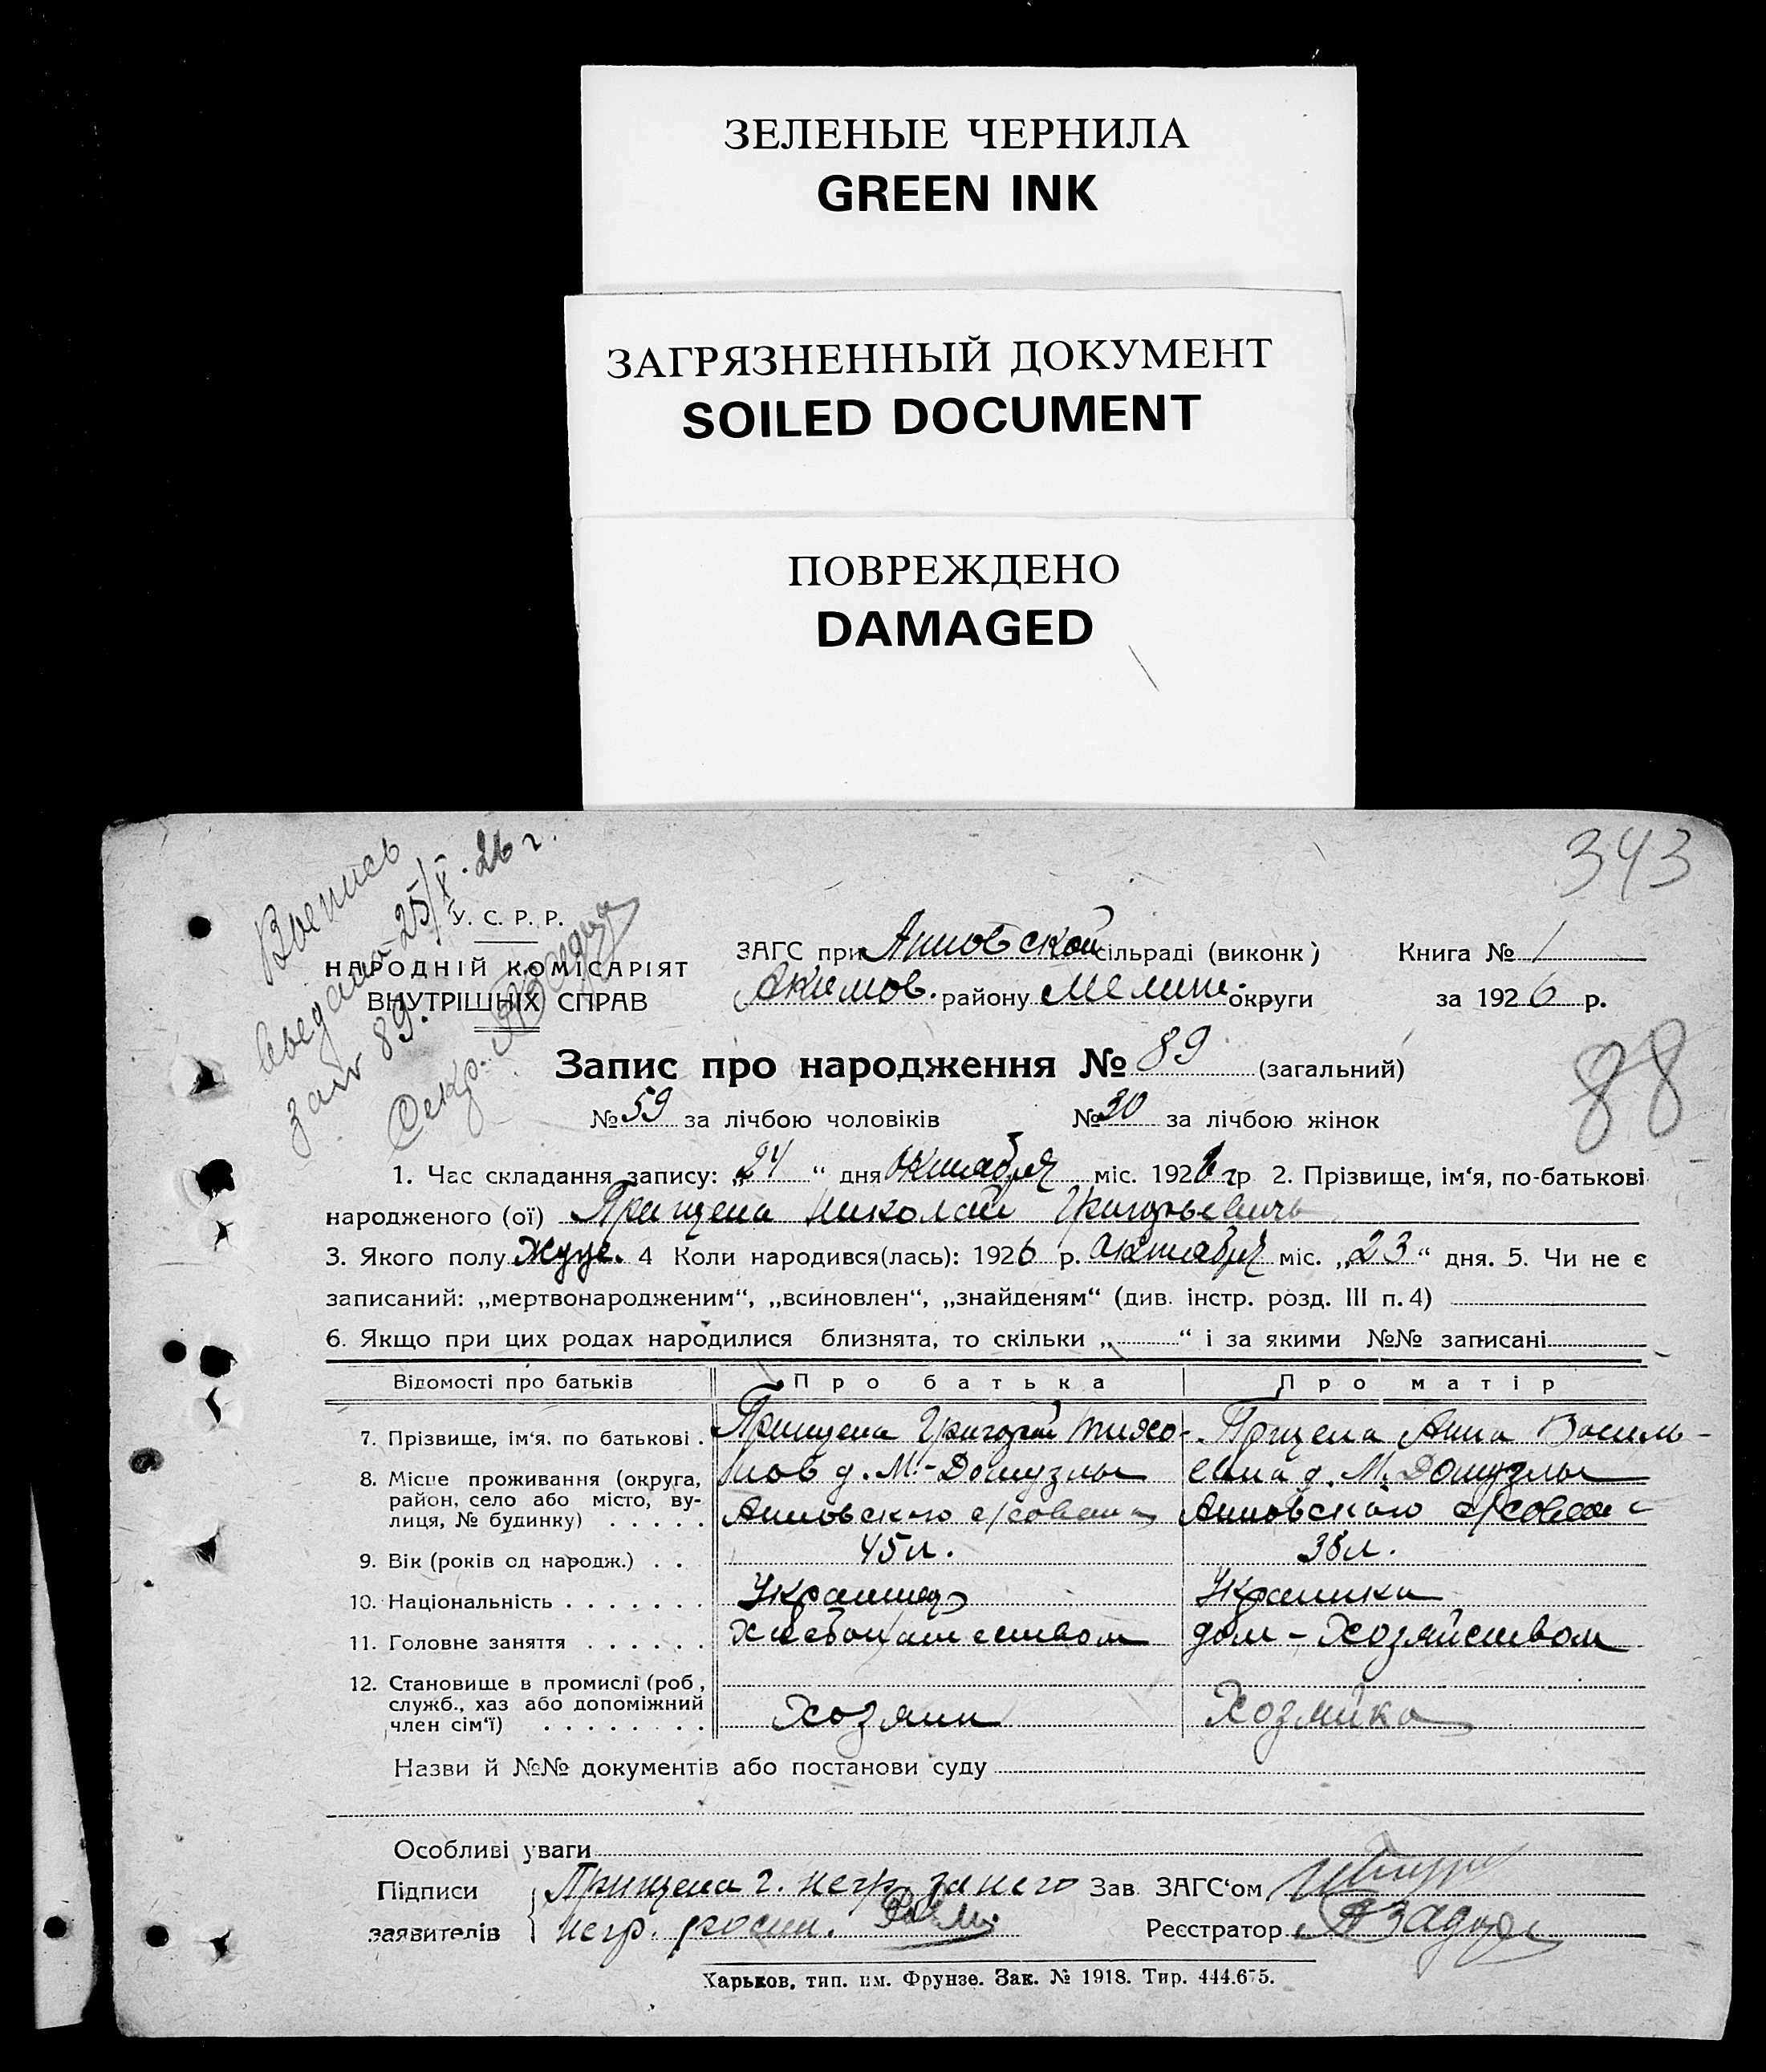 ЗЕЛЕНЫЕ ЧЕРНИЛА
GREEN INK
ЗАГРЯЗНЕННЫЙ ДОКУМЕНТ
SOILED DOCUMENT
ПОВРЕЖДЕНО
DAMAGED
343
25/X. 26 г.
89.
Секр.
У. С. Р. Р.
НАРОДНІЙ КОМІСАРІЯТ
ВНУТРІШНІХ СПРАВ
ЗАГС при Анновской сільраді (виконк) Книга № 1
Акимов. району Мелит. округи за 1926 р.
Запис про народження № 89 (загальний)
88
№ 59 за лічбою чоловіків № 30 за лічбою жінок
1. Час складання запису: „24“ дня октября міс. 1926 гр 2. Прізвище, ім‘я, по-батькові
народженого (ої) Прищепа Николай Григорьевичь
3. Якого полу Муж. 4 Коли народився(лась): 1926 р. октября міс. „23“ дня. 5. Чи не є
записаний: „мертвонародженим“, „всиновлен“, „знайденям“ (див. інстр. розд. III п. 4)
6. Якщо при цих родах народилися близнята, то скільки „ “ і за якими №№ записані
Відомості про батьків Про батька Про матір
7. Прізвище, ім‘я. по батькові . Прищепа Григорий Тихо- Прищепа Анна Василь-
8. Місце проживання (округа, район, село або місто, ву-лиця, № будинку) . . . . . нов д. М.-Домузлы Анновского с/совета евна д. М. Домузлы Анновского с/совета
9. Вік (років од народж.) . . 45 л. 38 л.
10. Національність . . . . . . . Украинец Украинка
11. Головне заняття . . . . . . Хлебопашеством дом-Хозяйством
12. Становище в промислі (роб,
служб., хаз або допоміжний
член сім‘ї) . . . . . . . . Хозяин Хозяйка
Назви й №№ документів або постанови суду
Особливі уваги
Підписи Прищепа Г. негр. за него Зав. ЗАГС‘ом
заявителів негр. росп. Реєстратор
Харьков, тип. им. Фрунзе. Зак. № 1918. Тир. 444.675.